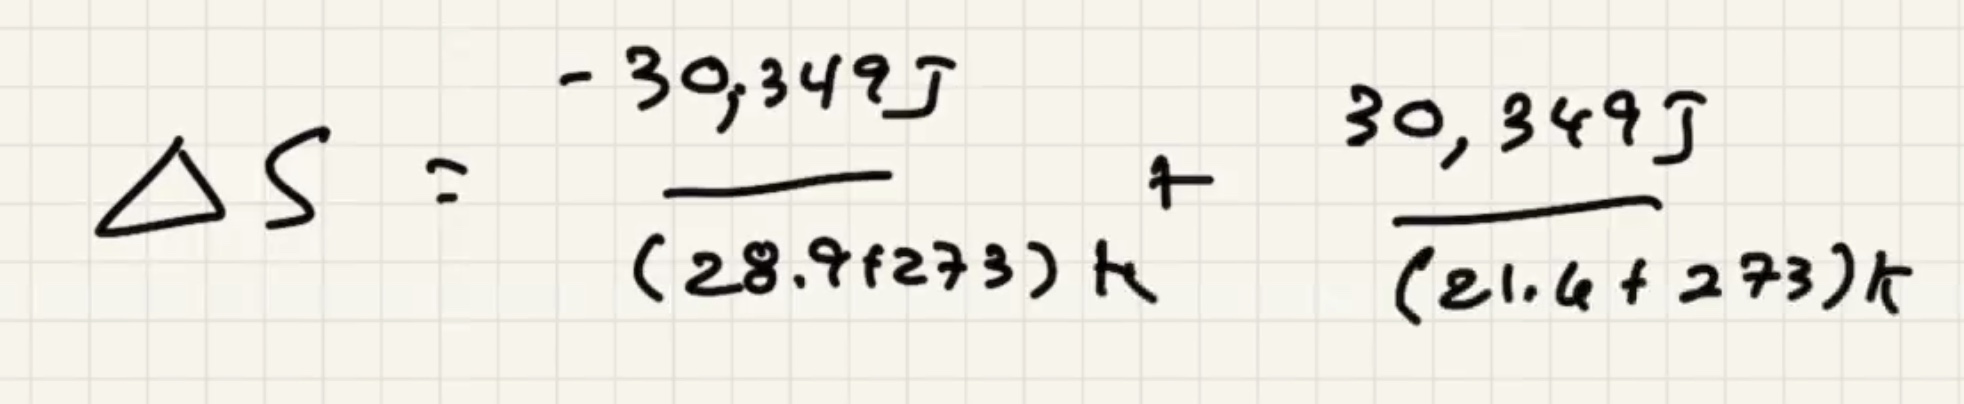 ΔS = -30,349J / (28.9+273)K + 30,349J / (21.6+273)K